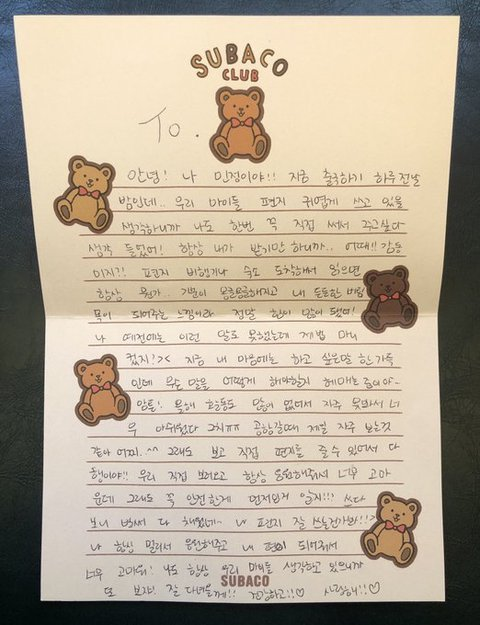 SUBACO
CLUB
To.
안녕! 나 민정이야!! 지금 출국하기 하루전날
밤인데.. 우리 마이들 편지 귀엽게 쓰고 있을
생각하니까 나도 한번 꼭 직접 써서 주고싶다
생각 들었어! 항상 내가 받기만 하니까.. 어때!! 감동
이지?! 편지 비행기나 숙소 도착해서 읽으면
항상 뭔가.. 기분이 몽글몽글해지고 내 든든한 버팀
목이 되어주는 느낌이라 정말 힘이 많이 됐어!
나 예전에는 이런 말도 못했는데 제법 마니
컸지!?>< 지금 내 마음에는 하고 싶은말 한가득
인데 무슨 말을 어떻게 해야할지 헤매는 중이야~
암튼! 올해 활동도 많이 없어서 자주 못봐서 너
무 아쉬웠다 그치ㅠㅠ 공항갈때 제일 자주 보는것
같아 어찌.^^ 그래도 보고 직접 편지를 줄 수 있어서 다
행이야!! 우리 직접 보러오고 항상 응원해줘서 너무 고마
운데 그래도 꼭 안전한게 먼저인거 알지!!? 쓰다
보니 벌써 다 채웠네~ 나 편지 잘 쓰는건가봐!!>
나 항상 멀리서 응원해주고 내 편이 되어줘서
너무 고마워! 나도 항상 우리 마이들 생각하고 있으니까
SUBACO
또 보자! 잘 다녀올께!! 건강하고!!♡ 사랑해!!♡